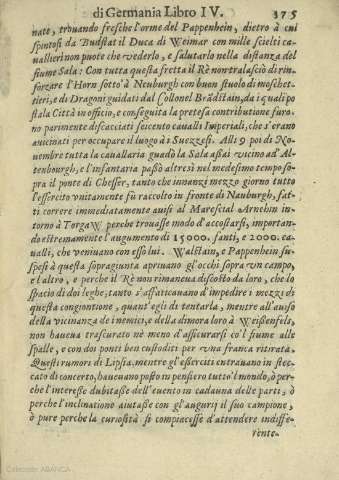 di Germania Libro IV. 375
nate, trouando fresche l'orme del Pappenhein, dietro à cui
spintosi da Budstat il Duca di Weimar con mille scielti ca-
uallieri non puote che vederlo, e salutarlo nella distanza del
fiume Sala: Con tutta questa fretta il Rè non tralasciò di rin-
forzare l'Horn sotto'à Neuburgh con buon stuolo di moschet-
tieri, e di Dragoni guidati dal Collonel Brädstain, da i quali po
sta Città in officio, e conseguita la pretesa contributione furo-
no parimente discacciati seicento caualli Imperiali, che s'erano
auicinati per occupare il luogo à i Suezzesi. Alli 9 poi di No-
uembre tutta la cauallaria guadò la Sala assai vicino ad Al-
tenbourgh, e l'infantaria passò altresì nel medesimo tempo so-
pra il ponte di Chesser, tanto che innanzi mezzo giorno tutto
l'essercito vnitamente fù raccolto in fronte di Nauburgh, fat-
ti correre immediatamente auisi al Marescial Arnehin in-
torno à Torgaw perche trouasse modo d'accostarsi, importan-
do estremamente l'augumento di 15000. fanti, e 2000. ca-
ualli, che veniuano con esso lui. Walstain, e Pappenheim su-
spesi à questa sopragiunta apriuano gl'occhi sopra vn campo,
e l'altro, e perche il Rè non rimaneua discosto da loro, che lo
spacio di doi leghe, tanto s'affaticauano d'impedire i mezzi di
questa congiontione, quant'egli di tentarla, mentre all'auiso
della vicinanza de i nemici, e della dimora loro à Weissenfels,
non haueua trascurato nè meno d'assicurarsi co'l fiume alle
spalle, e con doi ponti ben custoditi per vna franca ritirata.
Questi rumori di Lipsia, mentre gl'eserciti entrauano in stec-
cato di concerto, haueuano posto in pensiero tutto'l mondo, ò per-
che l'interesse dubitasse dell'euento in cadauna delle parti, ò
perche l'inclinatione aiutasse con gl'augurij il suo campione,
ò pure perche la curiosità si compiacesse d'attendere indiffe-
rente-
Colección ABANCA